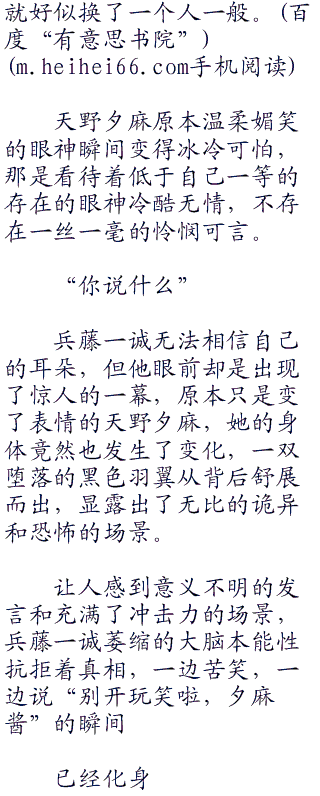 就好似换了一个人一般。(百
度“有意思书院”)
(m.heihei66.com手机阅读)
天野夕麻原本温柔媚笑
的眼神瞬间变得冰冷可怕，
那是看待着低于自己一等的
存在的眼神冷酷无情，不存
在一丝一毫的怜悯可言。
“你说什么”
兵藤一诚无法相信自己
的耳朵，但他眼前却是出现
了惊人的一幕，原本只是变
了表情的天野夕麻，她的身
体竟然也发生了变化，一双
堕落的黑色羽翼从背后舒展
而出，显露出了无比的诡异
和恐怖的场景。
让人感到意义不明的发
言和充满了冲击力的场景，
兵藤一诚萎缩的大脑本能性
抗拒着真相，一边苦笑，一
边说“别开玩笑啦，夕麻
酱”的瞬间
已经化身